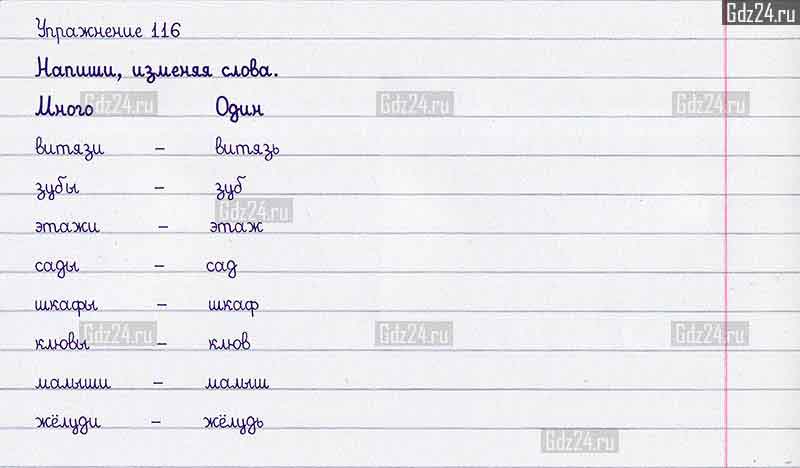 Gdz24.ru
Упражнение 116
Напиши, изменяя слова.
Много Один
Gdz24.ru Gdz24.ru Gdz24.ru
витязи – витязь
зубы – зуб
Gdz24.ru
этажи – этаж
сады – сад
шкафы – шкаф
Gdz24.ru Gdz24.ru Gdz24.ru
клювы – клюв
малыши – малыш
жёлуди – жёлудь
Gdz24.ru